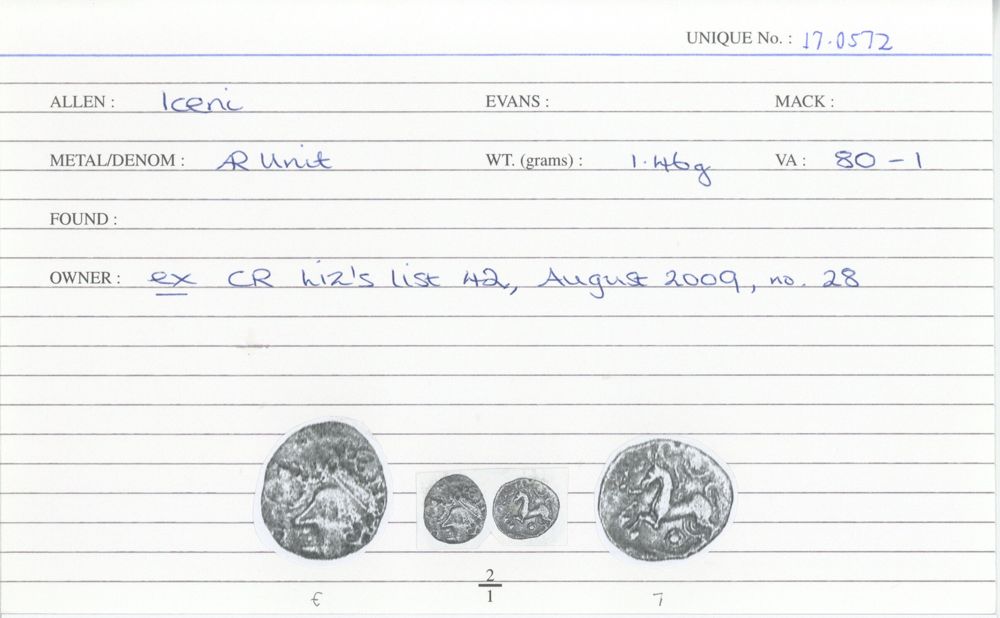 UNIQUE No. : 17.0572
ALLEN : Iceni EVANS : MACK :
METAL/DENOM : AR Unit WT. (grams) : 1.46g VA : 80-1
FOUND :
OWNER : ex CR Liz's list 42, August 2009, no. 28
2
1
€ 7